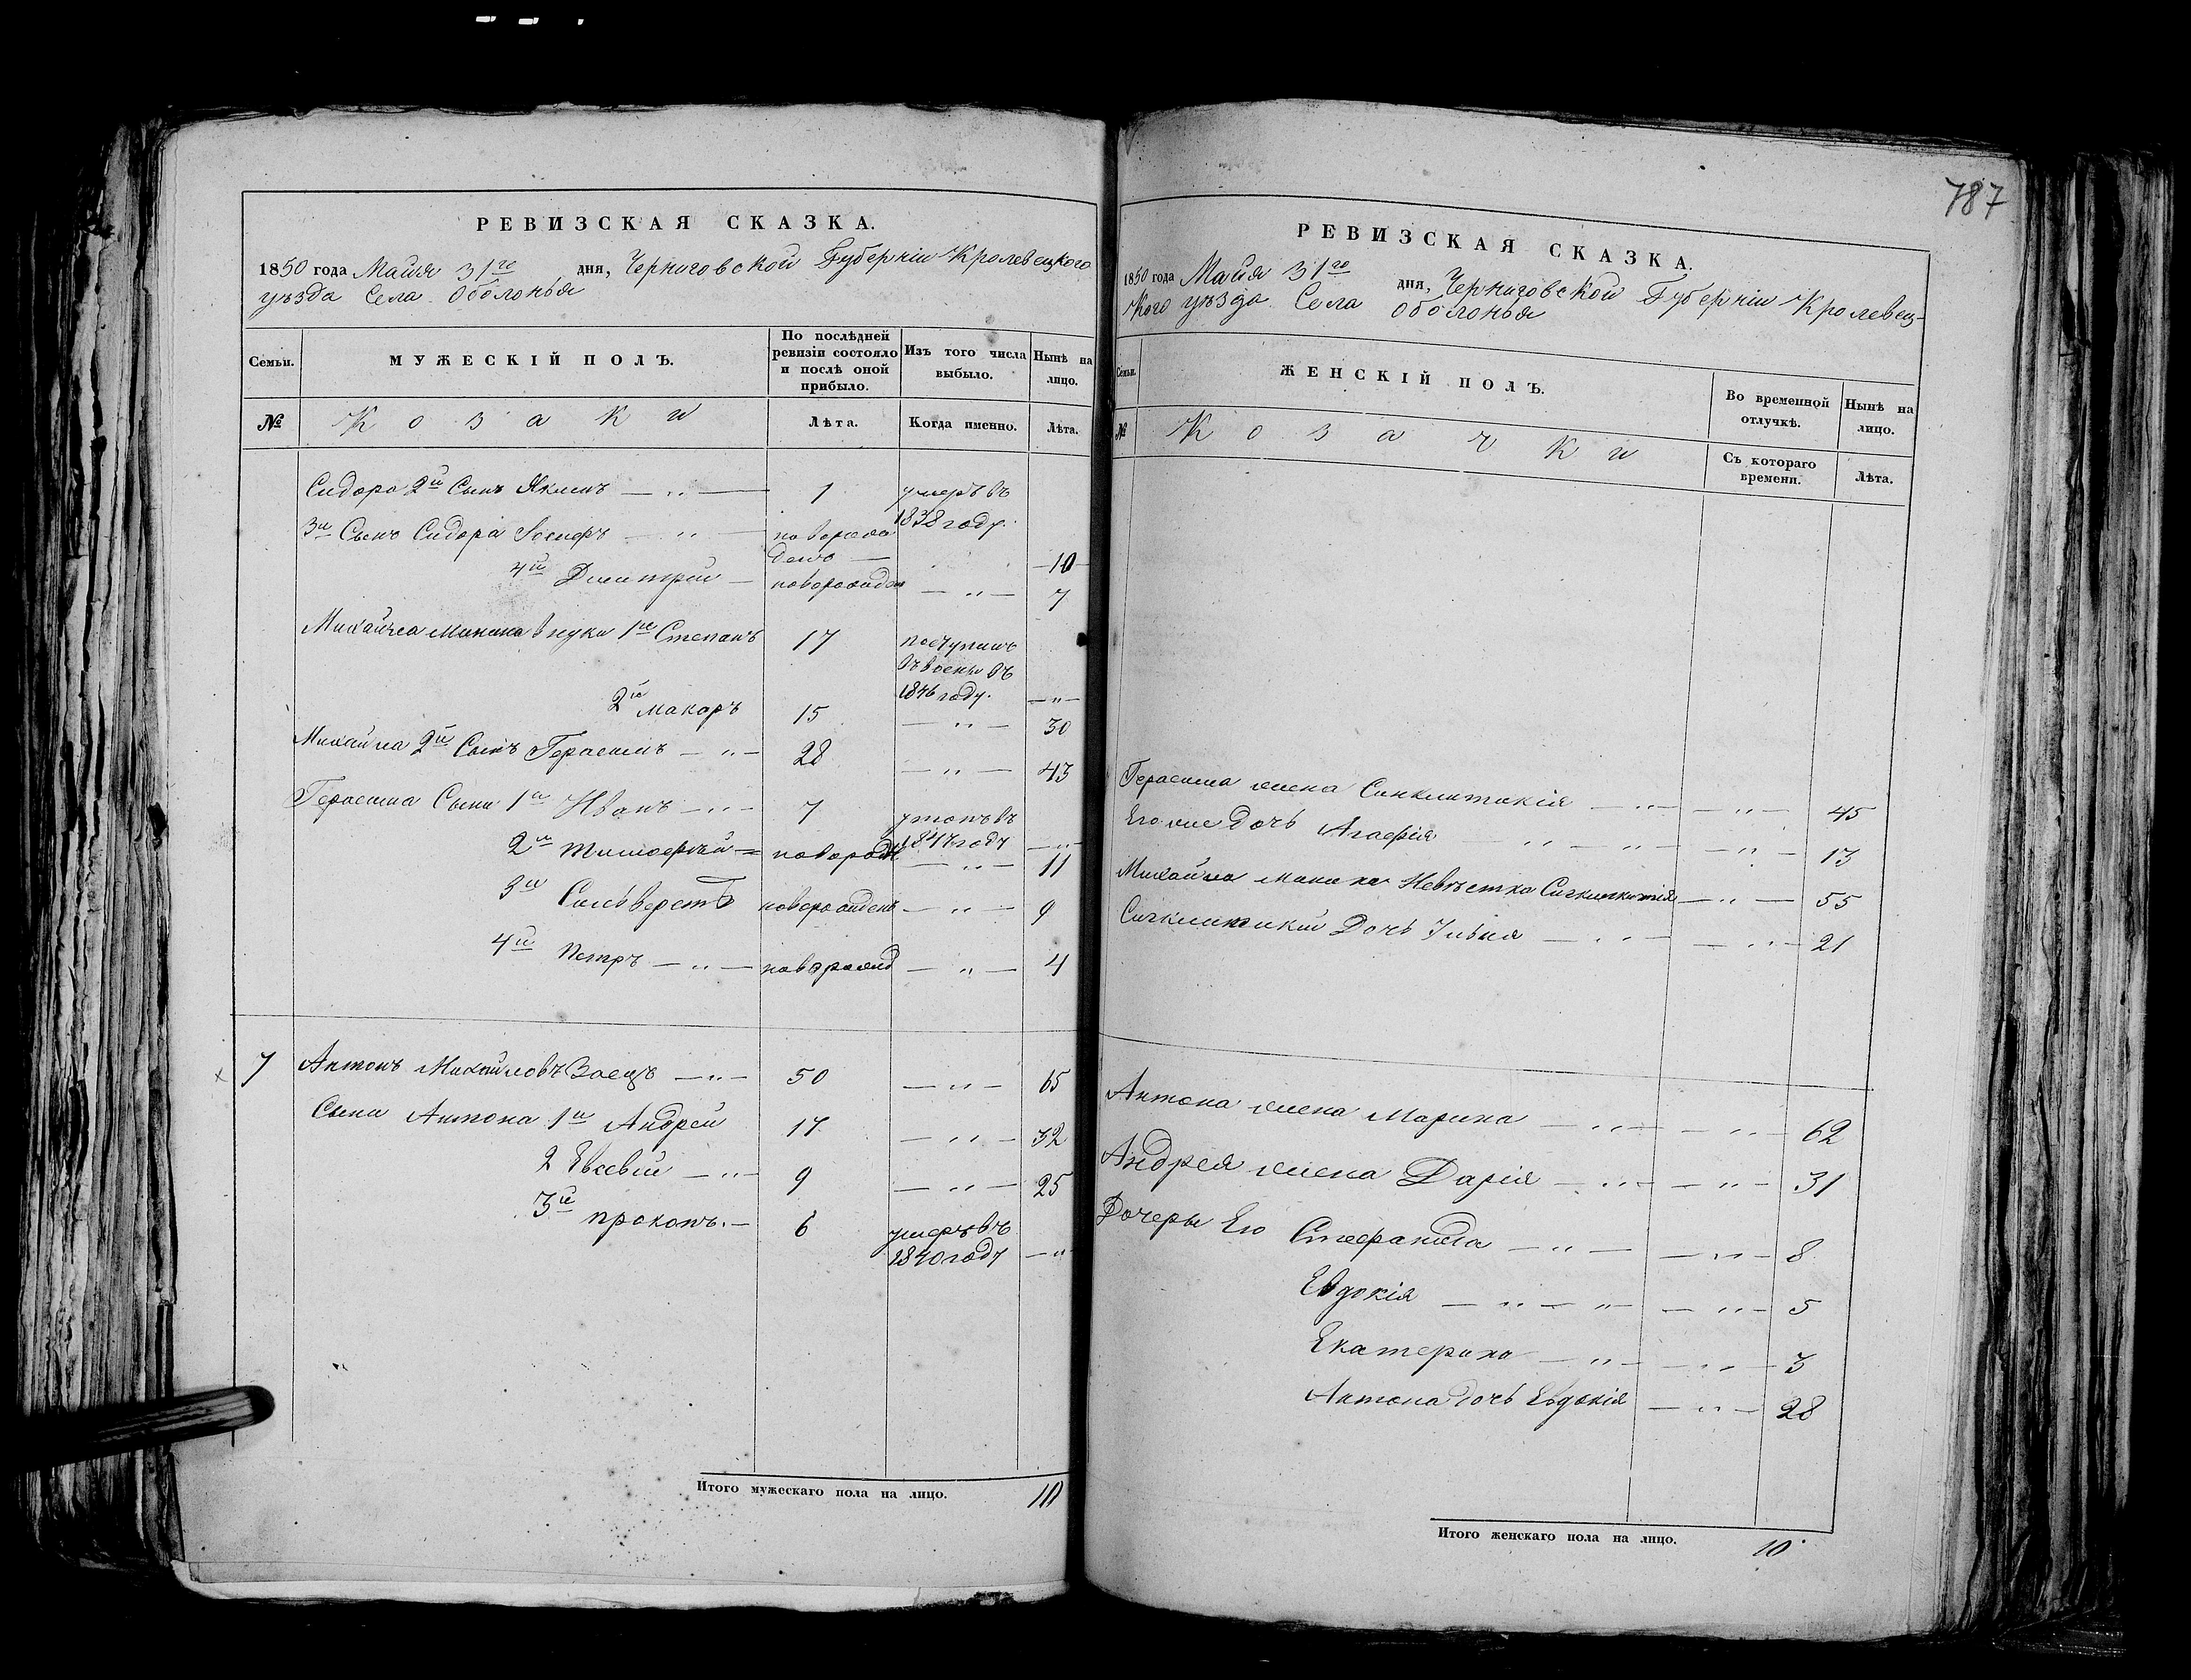 787
РЕВИЗСКАЯ СКАЗКА.
1850 года Майя 31го дня, Черниговской Губерніи Кролевецкого
уѣзда Села Оболонья
Семьи. МУЖЕСКІЙ ПОЛЪ. По послѣдней ревизіи состояло и послѣ оной прибыло. Изъ того числа выбыло. Нынѣ на лицо.
№ Козаки Лѣта. Когда именно. Лѣта.
Сидора 2й Сынъ Якимъ — „ — 1 умеръ въ
1838 году.
3й Сынъ Сидора Іосифъ — „ — новорож
денъ — 10
4й Димитрій — новорожден — „ — 7
Михайла Минина внуки 1й Степанъ 17 поступилъ
въ военн въ
1846 году. — „ —
2й Макаръ 15 — „ — 30
Михайла 2й Сынъ Герасимъ — „ — 28 — „ — 43
Герасима Сыни 1й Иванъ — „ — 7 утопъ въ
1847 году — „ —
2й Тимофѣй = новорож — „ — 11
3й Сильверстъ новорожденъ — „ — 9
4й Петръ — „ — новорожд — „ — 4
7 Антонъ Михайловъ Заецъ — „ — 50 — „ — 65
Сыни Антона 1й Андрей 17 — „ — 32
2 Евсевій — „ — 9 — „ — 25
3й прокопъ. — 6 умеръ въ
1840 году — „
Итого мужескаго пола на лицо. 10
РЕВИЗСКАЯ СКАЗКА.
1850 года Майя 31го дня, Черниговской Губерніи Кролевец-
кого уѣзда Села Оболонья
Семьи. ЖЕНСКІЙ ПОЛЪ. Во временной отлучкѣ. Нынѣ на лицо.
№ Козачки Съ котораго времени. Лѣта.
Герасима жена Синклитикія — „ — — „ — 45
Его же дочь Агафія — „ — „ — — „ — 13
Михайла Невѣстка — „ — 55
Дочь — „ — — „ — 21
Антона жена Марина — „ — — „ — 62
Андрея жена Дарія — „ — — „ — 31
Дочеры Его Стефанида — „ — — „ — 8
Евдокія — „ — „ — — „ — 5
Екатерина — „ — — „ — 3
Антона дочь Евдокія — „ — 28
Итого женскаго пола на лицо. 10